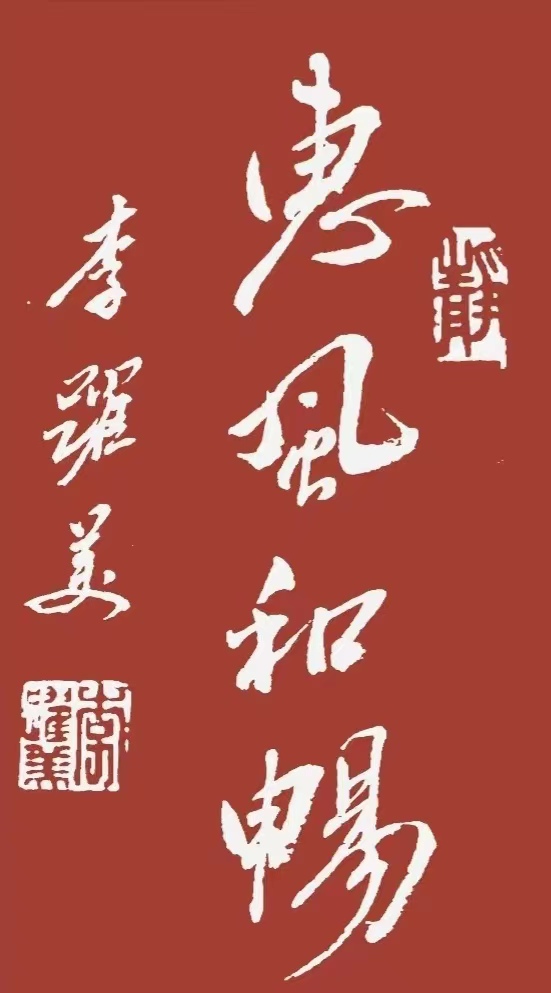 惠風和暢
李躍美